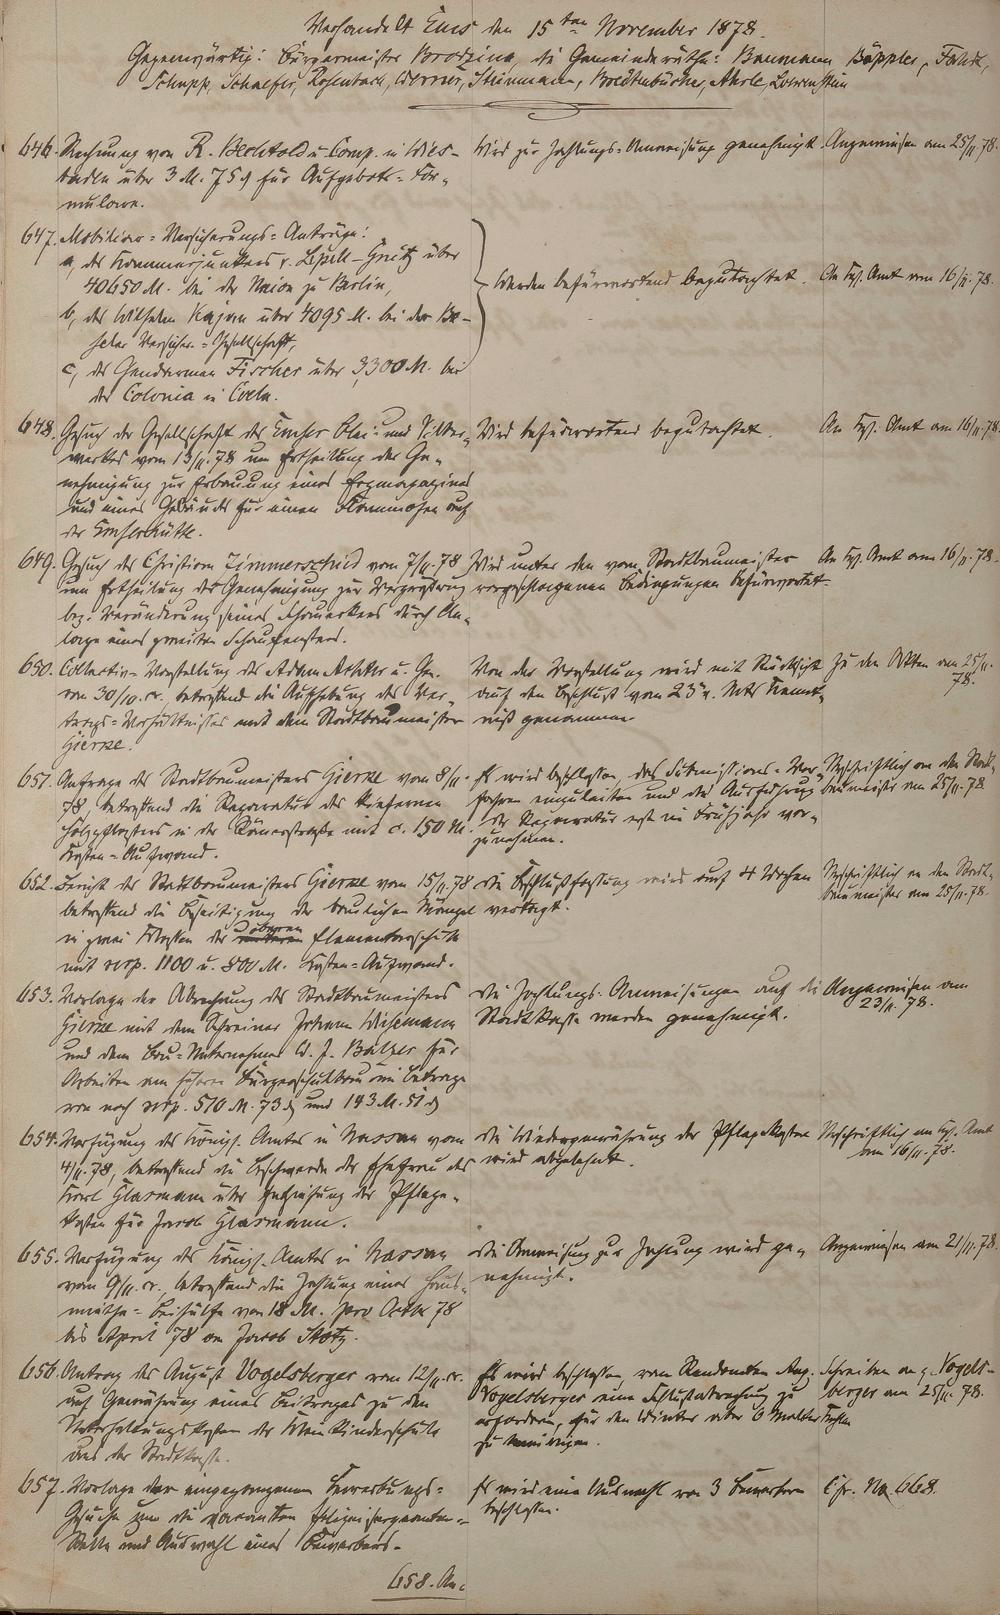 Verhandelt Ems den 15ten November 1878.
Gegenwärtig: Bürgermeister Brodzina, die Gemeinderäthe: Baumann Bäppler, Fahdt,
Schupp, Schaefer, Rosenbach, Werner, Thinmann, Breidenbücher, Ahrle, Loewenstein
646. Rechnung von R. Bechtold u. Comp. in Wies-
baden über 3 M. 75 ₰ für Aufgebots-For-
mulare.
Wird zur Zahlungs-Anweisung genehmigt.
Angewiesen am 25/11.78.
647. Mobiliar-Versicherungs-Anträge:
a, des Kammerjunkers v. über
40650 M. bei der Union zu Berlin,
b, des Wilhelm Kajan über 4095 M. bei der Ba-
seler Versicher.-Gesellschaft,
c, des Gendarmen Fischer über 3,300 M. bei
der Colonia in Coeln.
Werden befürwortend begutachtet.
An Kgl. Amt am 16/11.78.
648. Gesuch der Gesellschaft des Emser Blei- und Silber-
werkes vom 13/11.78 um Ertheilung der Ge-
nehmigung zur Erbauung eines Erzmagazines
und eines Gebäudes für einen Flammofen auf
der Emserhütte.
Wird befürwortend begutachtet.
An Kgl. Amt am 16/11.78.
649. Gesuch des Christian Zimmerschied vom 7/11.78
um Ertheilung der Genehmigung zur Vergrößerung
bez. Veränderung seines Schauerkers durch An-
lage eines zweiten Schaufensters.
Wird unter den vom Stadtbaumeister
vorgeschlagenen Bedingungen befürwortet.
An Kgl. Amt am 16/11.78.
650. Collectiv-Vorstellung des Adam u. Gen.
von 30/10. cr., betreffend die Aufhebung des Ver-
trags-Verhältnisses mit dem Stadtbaumeister
Gierze.
Von der Vorstellung wird mit Rücksicht
auf den Beschluß vom 23. v. Mts Kennt-
niß genommen
Zu den Akten am 25/11.
78.
651. Anfrage des Stadtbaumeisters Gierze vom 8/11.
78, betreffend die Reparatur des kiefernen
Holzpflasters in der Römerstraße mit c. 150 M.
Kosten-Aufwand.
Es wird beschlossen, das Submissions-Ver-
fahren einzuleiten und die Ausführung
der Reparatur erst im Frühjahr vor-
zunehmen.
Abschriftlich an den Stadt-
baumeister am 25/11.78.
652. Bericht des Stadtbaumeisters Gierze vom 15/11.78
betreffend die Beseitigung der baulichen Mängel
in zwei Klassen der oberen Elementarschule
mit resp. 1100 u. 800 M. Kosten-Aufwand.
Die Beschlußfassung wird auf 4 Wochen
vertagt.
Abschriftlich an den Stadt-
baumeister am 25/11.78.
653. Vorlage der Abrechnung des Stadtbaumeisters
Gierze mit dem Schreiner Johann Wissmann
und dem Bau-Unternehmer W. J. Balzer für
Arbeiten am höhern Bürgerschulbau im Betrage
von noch resp. 510 M. 73 ₰ und 143 M. 51 ₰
Die Zahlungs-Anweisungen auf die
Stadtkasse werden genehmigt.
Angewiesen am
23/11.78.
654. Verfügung des Königl. Amtes in Nassau vom
4/11.78, betreffend die Beschwerde der Ehefrau des
Karl Glasmann über Entziehung der Pflege-
kosten für Jacob Glasmann.
Die Wiedergewährung der Pflegekosten
wird abgelehnt.
Abschriftlich an Kgl. Amt
am 16/11.78.
655. Verfügung des Königl. Amtes in Nassau
vom 9/11. cr., betreffend die Zahlung einer Haus-
miethe-Beihülfe von 18 M. pro Octbr 78
bis April 78 an Jacob Stotz.
Die Anweisung zur Zahlung wird ge-
nehmigt.
Angewiesen am 21/11.78.
656. Antrag des August Vogelsberger vom 12/11. cr.
auf Gewährung eines Beitrages zu den
Unterhaltungskosten der Kleinkinderschule
aus der Stadtkasse.
Es wird beschlossen, vom Rendanten Aug.
Vogelsberger eine Schlußabrechnung zu
erfordern, für den Winter aber 6 Malter Kohlen
zu bewilligen.
Schreiben an g. Vogels-
berger am 25/11.78.
657. Vorlage der eingegangenen Bewerbungs-
Gesuche um die vacante Polizeisergeanten-
Stelle und Auswahl eines Bewerbers.
Es wird eine Auswahl von 3 Bewerbern
beschlossen.
Cfr. No 668.
658. An-